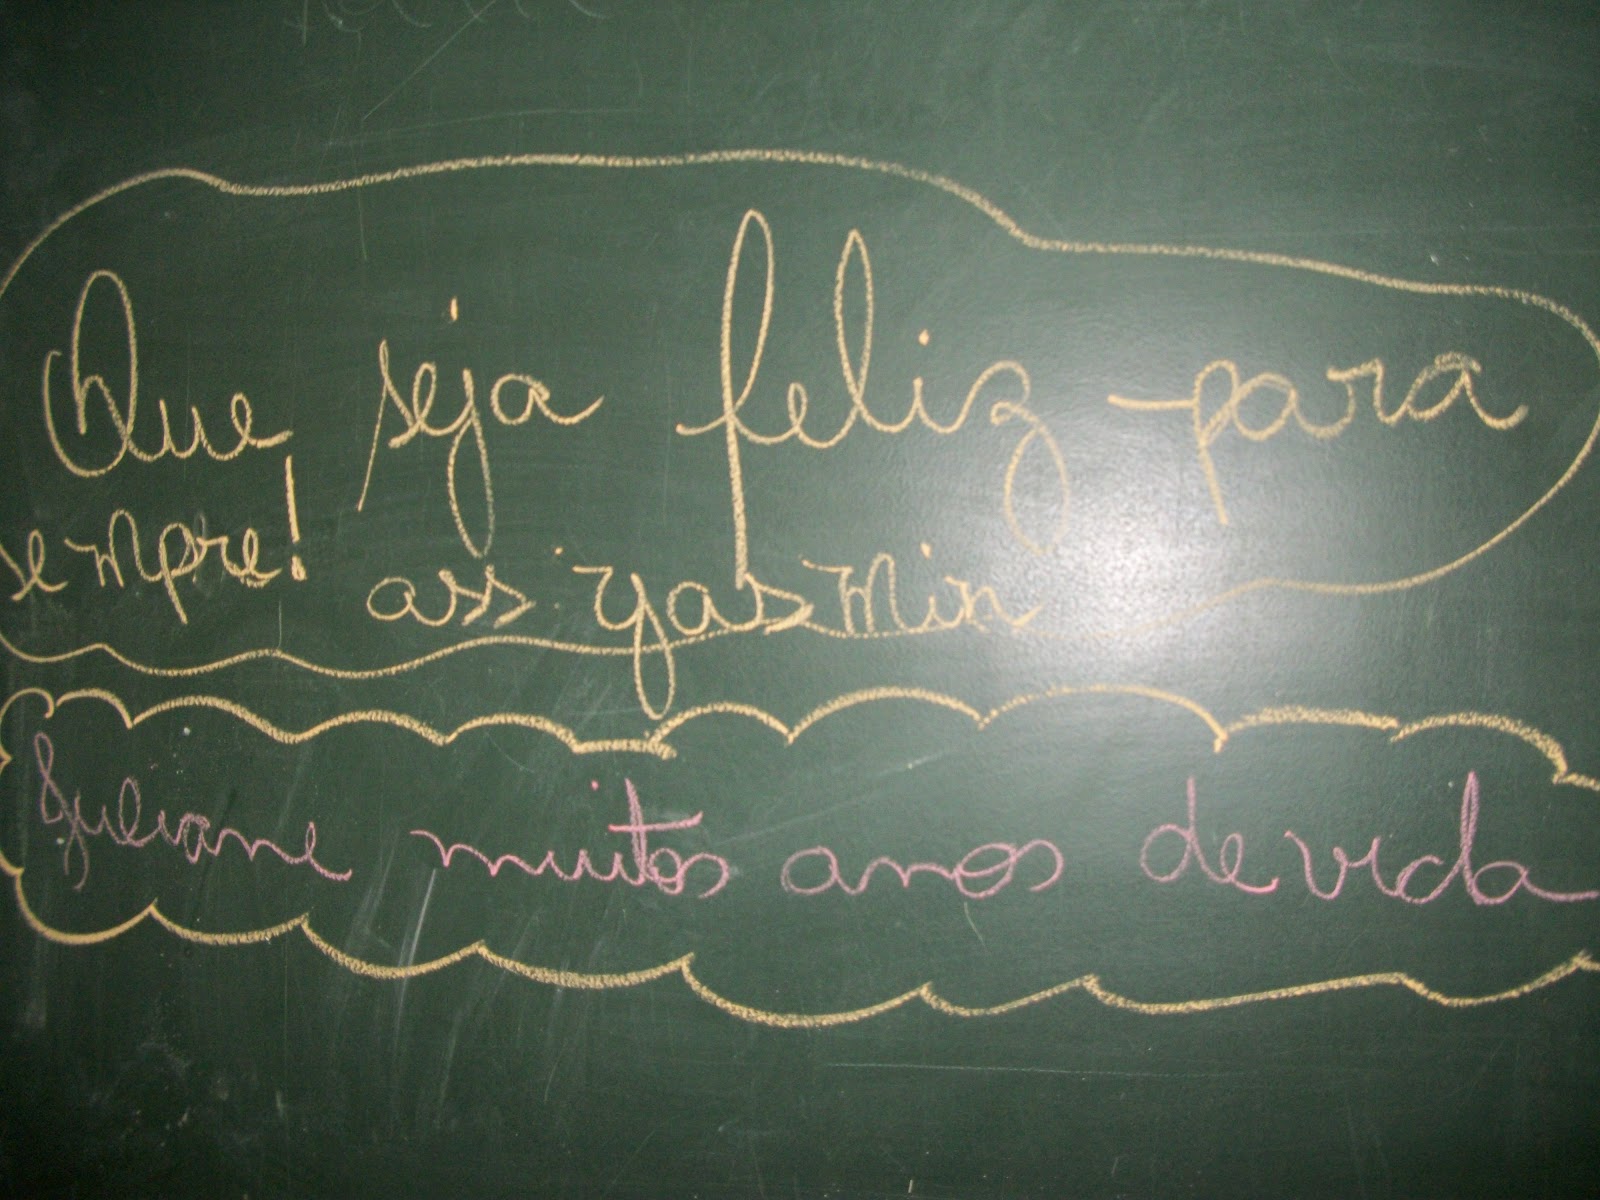 Que seja feliz para
sempre!
ass: yasmin
Juliane muitos anos de vida